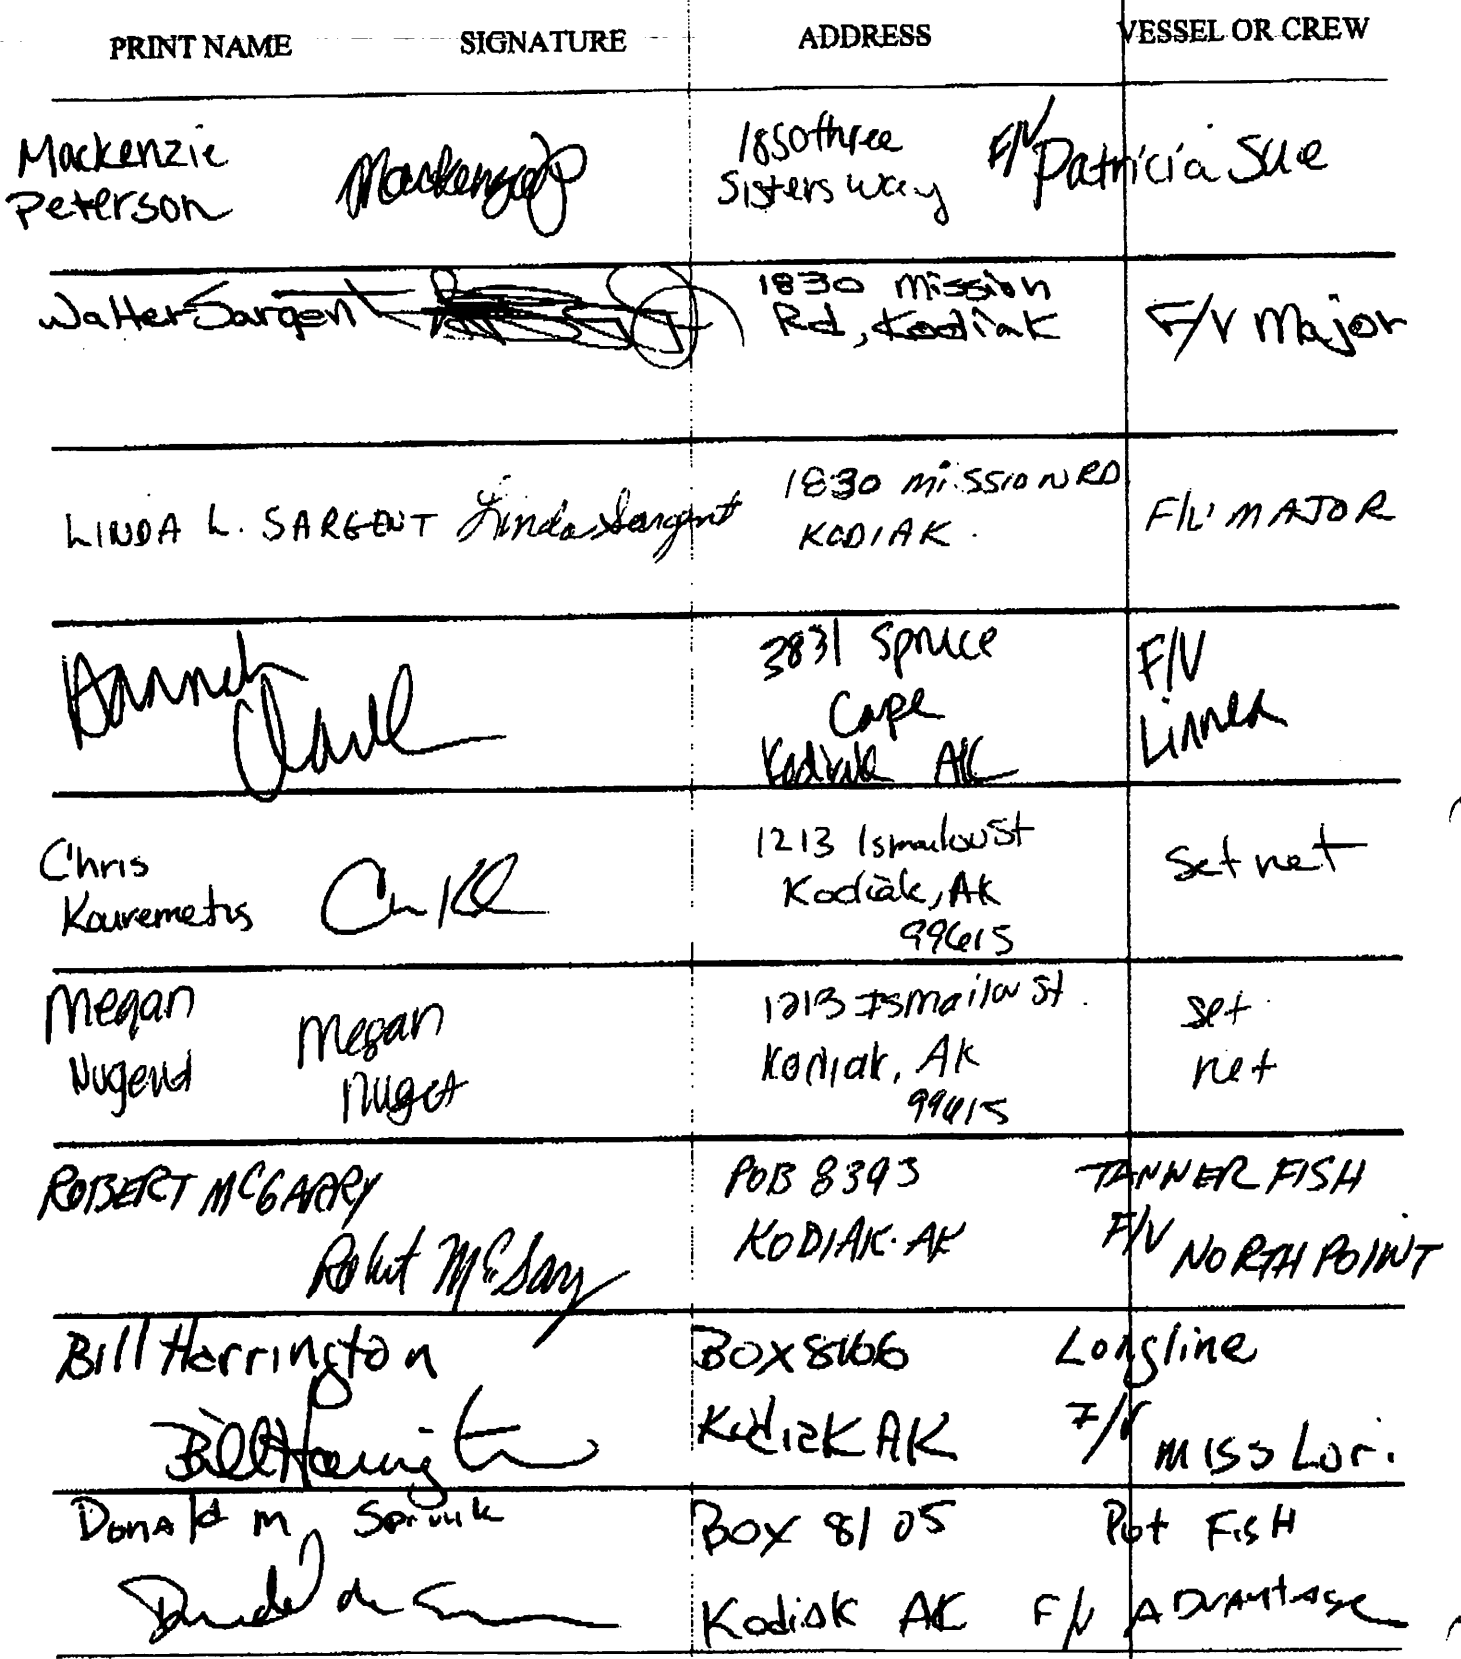 PRINT NAME SIGNATURE ADDRESS VESSEL OR CREW
Mackenzie Peterson Mackenzie P 1850 three Sisters Way F/V Patricia Sue
Walter Sargent 1830 Mission Rd, Kodiak F/V Major
LINDA L. SARGENT Linda Sargent 1830 MISSION RD KODIAK. F/V MAJOR
Hannah Clark 3831 Spruce Cape Kodiak AK F/V Linnea
Chris Kouremetis 1213 Ismailov St Kodiak, AK 99615 Set net
Megan Nugent Megan Nuget 1213 Ismailov St. Kodiak, AK 99615 set net
ROBERT MCGARRY POB 8393 TANNER FISH
Robert McGary KODIAK. AK F/V NORTH POINT
Bill Harrington BOX 8166 Longline
Bill Harrington Kodiak AK F/V MISS Lori
Donald M Box 8105 Pot FisH
Kodiak AK F/V ADVANTAGE